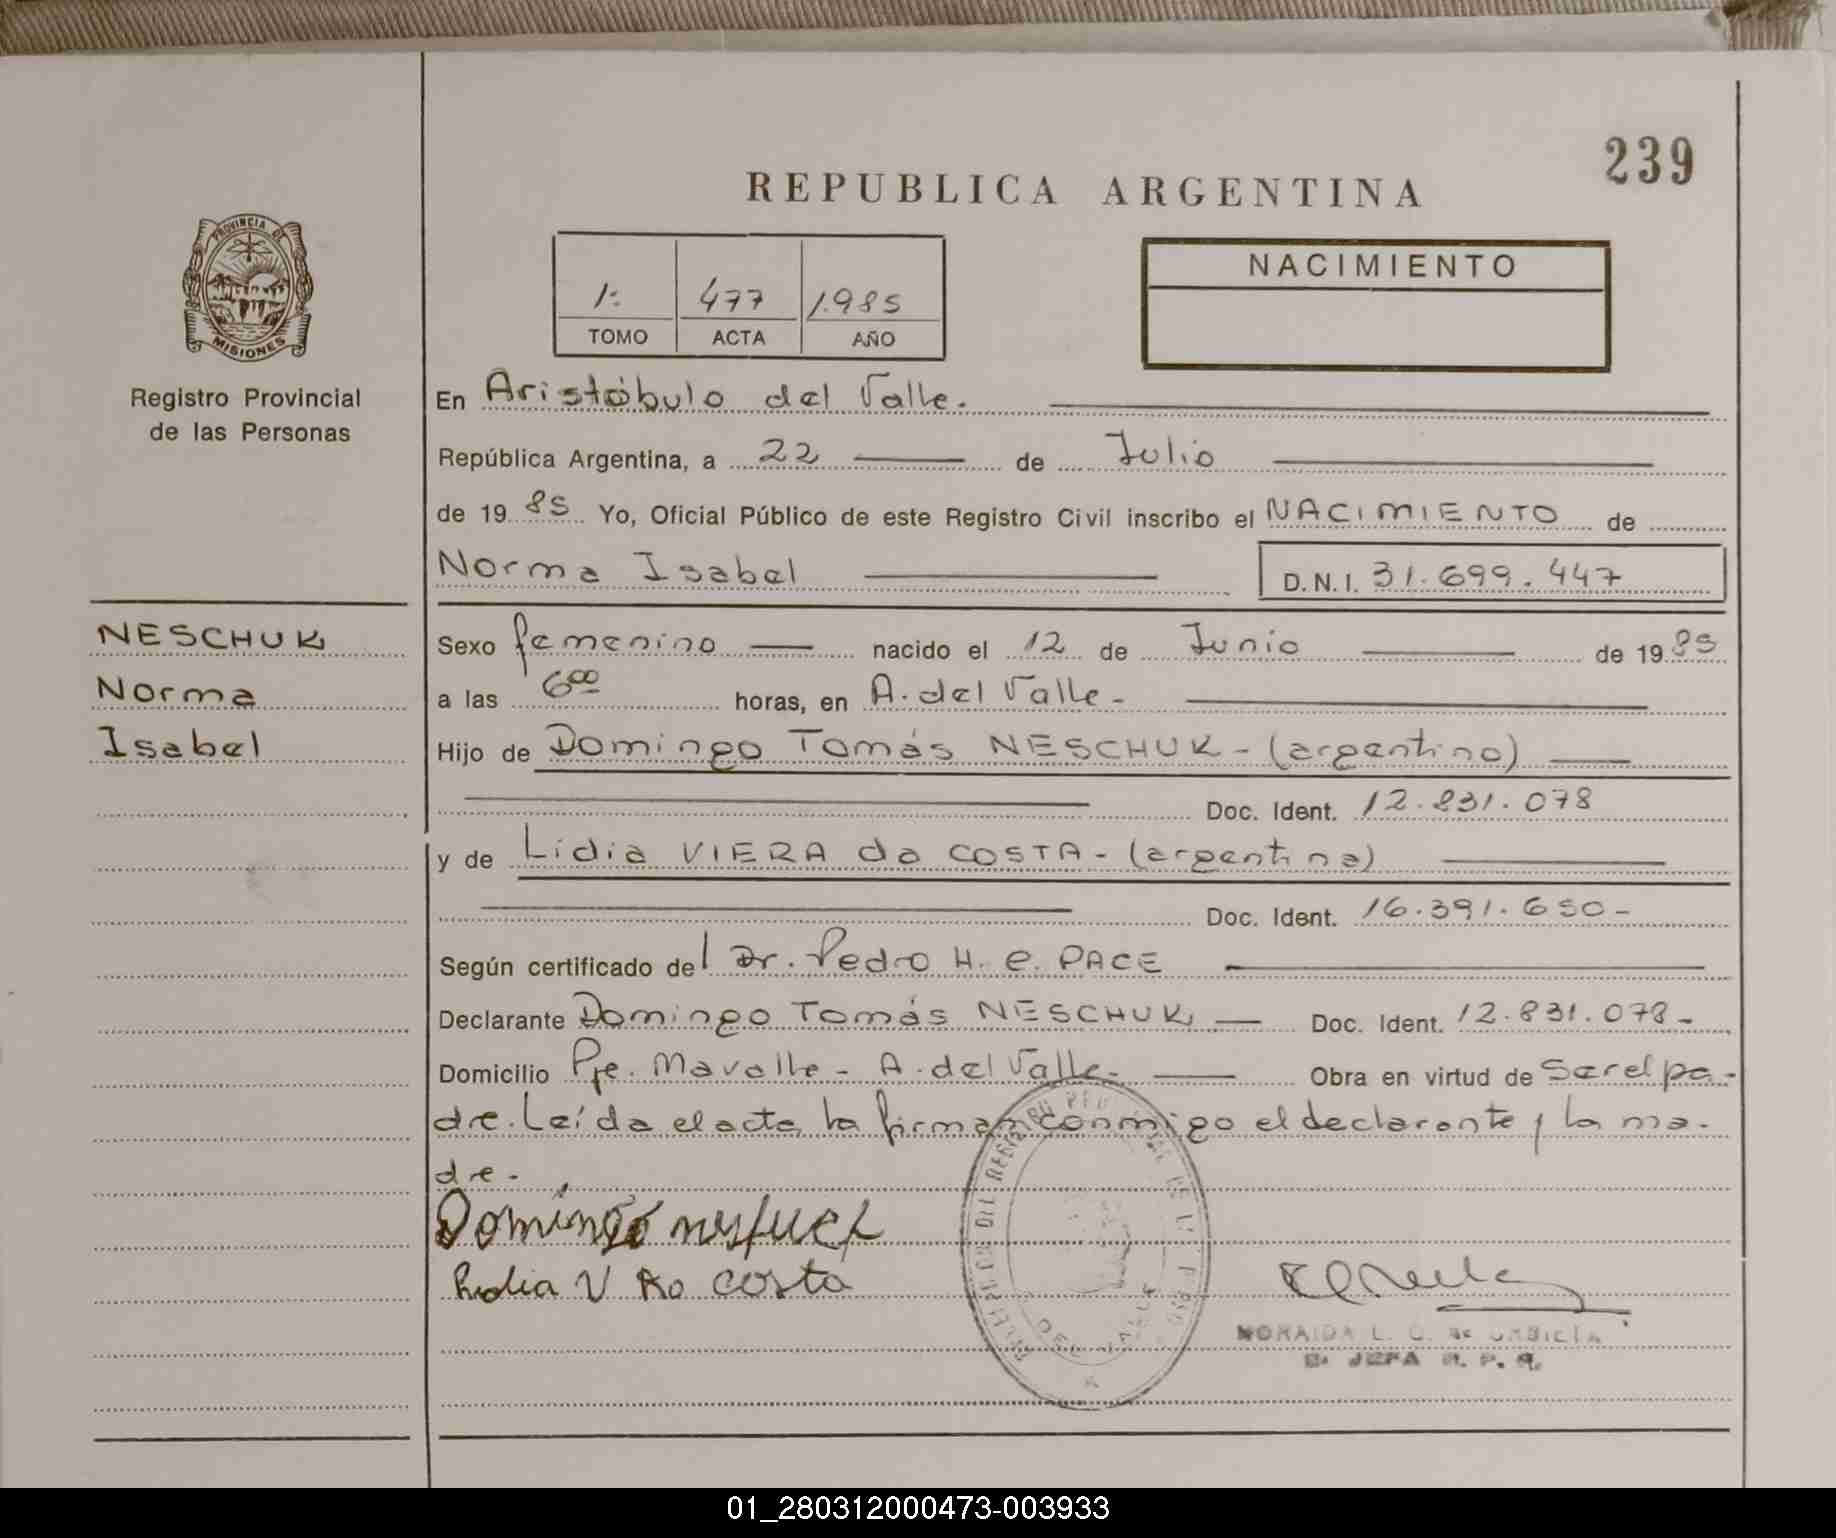 239
REPUBLICA ARGENTINA
PROVINCIA DE
MISIONES
Registro Provincial
de las Personas
NACIMIENTO
1: 477 1.985
TOMO ACTA AÑO
En Aristóbulo del Valle.
República Argentina, a 22 de Julio
de 19 85 Yo, Oficial Público de este Registro Civil inscribo el NACIMIENTO de
Norma Isabel D.N.I. 31.699.447
NESCHUK
Norma
Isabel
Sexo femenino nacido el 12 de Junio de 19 85
a las 6 00 horas, en A. del Valle -
Hijo de Domingo Tomás NESCHUK - (argentino)
Doc. Ident. 12.831.078
y de Lidia VIERA da COSTA - (argentina)
Doc. Ident. 16.391.650 -
Según certificado del Dr. Pedro H. e. PACE
Declarante Domingo Tomás NESCHUK Doc. Ident. 12.831.078 -
Domicilio Pje. Mavalle - A. del Valle - Obra en virtud de Ser el pa-
dre. Leída el acta la firman conmigo el declarante y la ma-
dre -
Domingo
Lidia V Da costa
DEL VALLE
NORAIDA L. C. de
JEFA R. P.
01_280312000473-003933